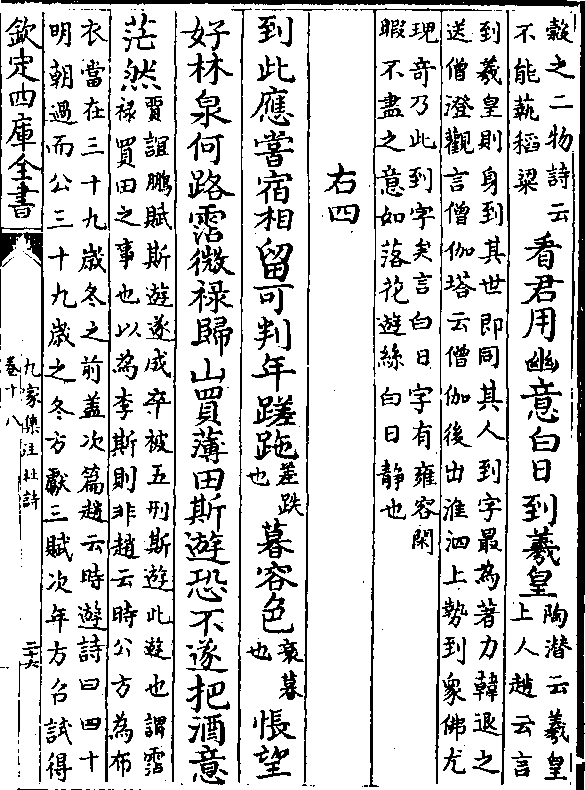 穀之二物詩云
不能蓺稻粱
看君用幽意白日到羲皇
陶潛云羲皇
上人趙云言
到羲皇則身到其世即同其人到字最為著力韓退之
送僧澄觀言僧伽塔云僧伽後出淮泗上勢到衆佛尤
現奇乃此到字矣言白日字有雍容閑
暇不盡之意如落花遊絲白日靜也
右四
到此應嘗宿相留可判年蹉跎
差跌
也
暮容色
衰暮
也
悵望
好林泉何路霑微祿歸山買薄田斯遊恐不遂把酒意
茫然
賈誼鵬賦斯遊遂成卒被五刑斯遊此遊也謂霑
祿買田之事也以為李斯則非趙云時公方為布
衣當在三十九歲冬之前蓋次篇趙云時遊詩曰四十
明朝過而公三十九歲之冬方獻三賦次年方召試得
欽定四庫全書
九家集注杜詩
卷十八
二十六